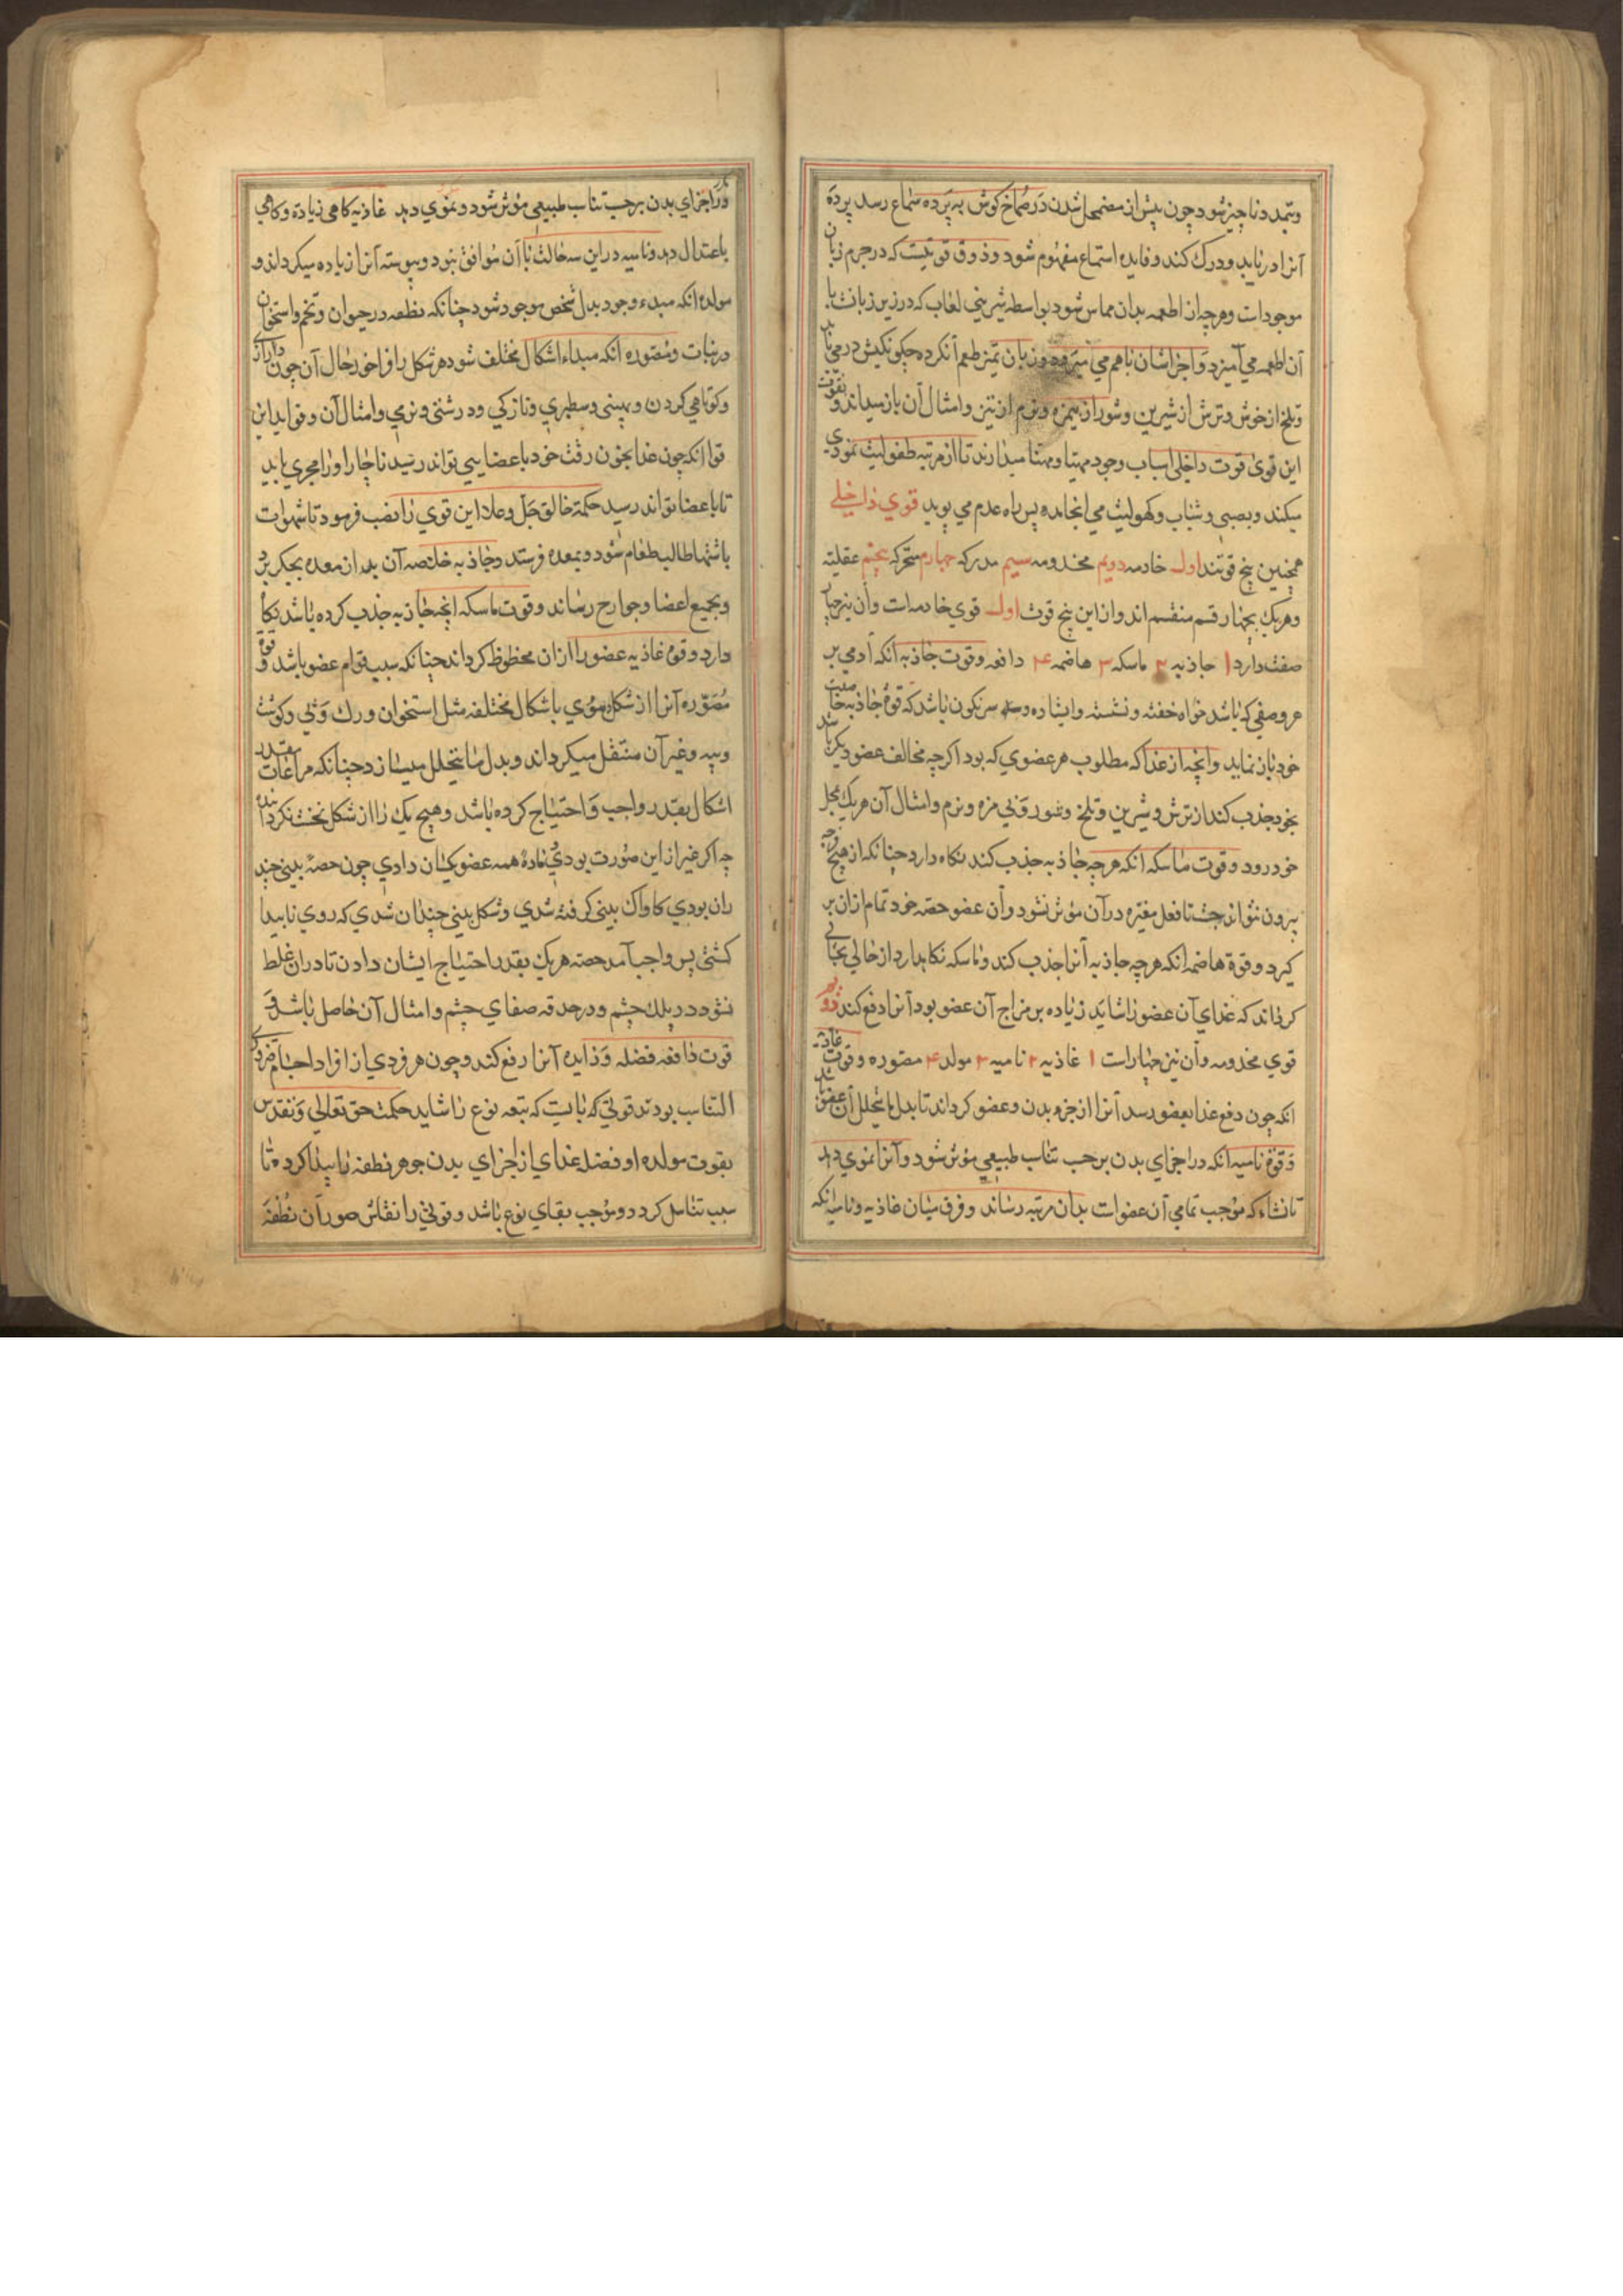 وتمدد ناچیز شود چون پیش از مضمحل شدن در صماخ کوش به پرده سماع رسد پرده
آنرا دریابد و درک کند و فایده استماع مفهوم شود و ذوق قوتیست که در جرم زبان
موجودات وهرچه از اطعمه بدان مماس شود بواسطه شیرینی لعاب که در زیر زبانت با
آن اطعمه می آمیزد و اجزاشان باهم می وزبان تمیز طعم آنکرده چکونکیش در می
وتلخ از خوش وترش از شیرین وشور از بیمزه ونرم از تیز وامثال آن باز میداند و بقوت
این قوی قوت داخلی اسباب وجود مهیا و مهنا میدارند تا از مرتبه طفولیت نمودی
میکند وبصبی وشباب وکهولیت می انجامد پس راه عدم می پوید قوی داخلی
همچنین پنج قوتند اول خادمه دویم مخدومه سیم مدرکه چهارم متحرکه پنجم عقلیه
وهریک بچهار قسم منقسم اند واز این پنج قوت اول قوی خادمه است وآن نیز چهار
صفت دارد ۱ جاذبه ۲ ماسکه ۳ هاضمه ۴ دافعه وقوت جاذبه آنکه آدمی بر
هر وصفی که باشد خواه خفته ونشسته وایستاده و سرنکون باشد که قوة جاذبه خا صیت
خود باز نماید وانچه از غذا که مطلوب هر عضوی که بود اکرچه مخالف عضو دیکر باشد
بخود جذب کند از ترش وشیرین وتلخ وشور وبی مزه ونرم وامثال آن هریک بمحل
خود رود وقوت ماسکه آنکه هرچه جاذبه جذب کند نکاه دارد چنانکه از هیچ وجه
بیرون نتواند جست تا فعل مغیره در آن مؤثر شود وآن عضو حصه خود تمام از آن بر
کیرد وقوة هاضمه آنکه هرچه جاذبه آنرا جذب کند وماسکه نکاهدارد از حالی بحالی
کرداند که غذای آن عضو را شاید زیاده بر مزاج آن عضو بود آنرا دفع کند دویم
قوی مخدومه وآن نیز چهار است ۱ غاذیه ۲ نامیه ۳ مولد ۴ مصوره وقوت غاذیه
آنکه چون دفع غذا بعضو رسد آنرا از جزو بدن وعضو کرداند تا بدل ما یتحلل آن عضو باشد
وقوة نامیه آنکه در اجزای بدن بر حسب تناسب طبیعی مؤثر شود وآنرا نموی دهد
تا نشاء که موجب تمامی آن عضو است بدان مرتبه رساند وفرق میان غاذیه ونامیه آنکه
در اجزای بدن بر حسب تناسب طبیعی مؤثر شود ونموی دهد غاذیه کاهی زیاده وکاهی
باعتدال دهد ونامیه در این سه حالت با آن موافق نبود وپیوسته آنرا زیاده میکرداند و
مولده آنکه مبدء وجود بدل شخص موجود شود چنانکه نطفه در حیوان وتخم واستخوان
در نبات ومصوره آنکه مبداء اشکال مختلف شود هر شکل را فراخور حال آن چون درازی
وکوتاهی کردن وپهنی وسطبری ونازکی ودرشتی ونرمی وامثال آن وفواید این
قوا آنکه چون غذا بخون رقت خود باعضا نمی تواند رسید ناچار او را مجری باید
تا باعضا تواند رسید حکمة خالق جل وعلا این قوی را نصب فرمود تا شهوات
باشتها طالب طعام شود وبمعده فرستد وجاذبه خلاصه آن بعد از معده بجکر برد
وبجمیع اعضا وجوارح رساند وقوت ماسکه آنچه جاذبه جذب کرده باشد نکاه
دارد وقوة غاذیه عضو را از آن محظوظ کرداند چنانکه سبب قوام عضو باشد وقوة
مصوره آنرا از شکل باشکال مختلفه مثل استخوان ورک وپی وکوشت
وپیه وغیر آن منتقل میکرداند وبدل ما یتحلل میسازد چنانکه مراعات بقدر
اشکال بقدر واجب واحتیاج کرده باشد وهیچ یک را از شکل نخست نکردانیده
چه اکر غیر از این صورت بودی ماده همه عضو یکسان دادی چون حصه بینی چند
ران بودی کاواک بینی کرفته شدی وشکل بینی چندان شدی که روی ناپیدا
کشتی پس واجب آمد حصه هریک بقدر احتیاج ایشان دادن تا در آن غلط
نشود در پلک چشم ودر حدقه صفای چشم وامثال آن حاصل باشد و
قوت دافعه فضله وزایده آنرا رفع کند وچون هر فردی از افراد اجسام ضروری
التناسب بودند قوتی که بایست که بتبعه نوع را شاید حکمت حق تعالی وتقدس
بقوت مولده او فضله غذای از اجزای بدن جوهر نطفه را پیدا کرده تا
سبب تناسل کردد وموجب بقای نوع باشد وقوتی را نقاش صور آن نطفه